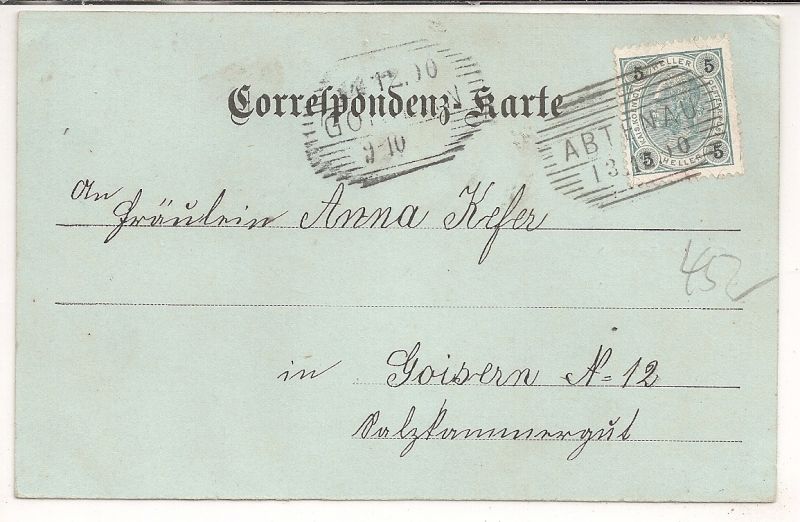 Correspondenz-Karte
ABTENAU
5 HELLER 5
5 HELLER 5
An
Fräulein Anna Kefer
452
in Goisern N= 12
Salzkammergut